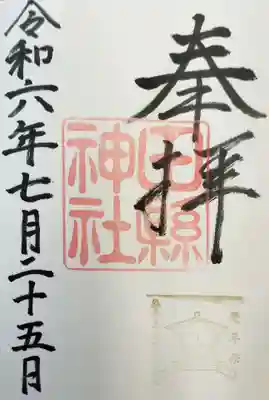 奉拝
田縣神社
令和六年七月二十五日